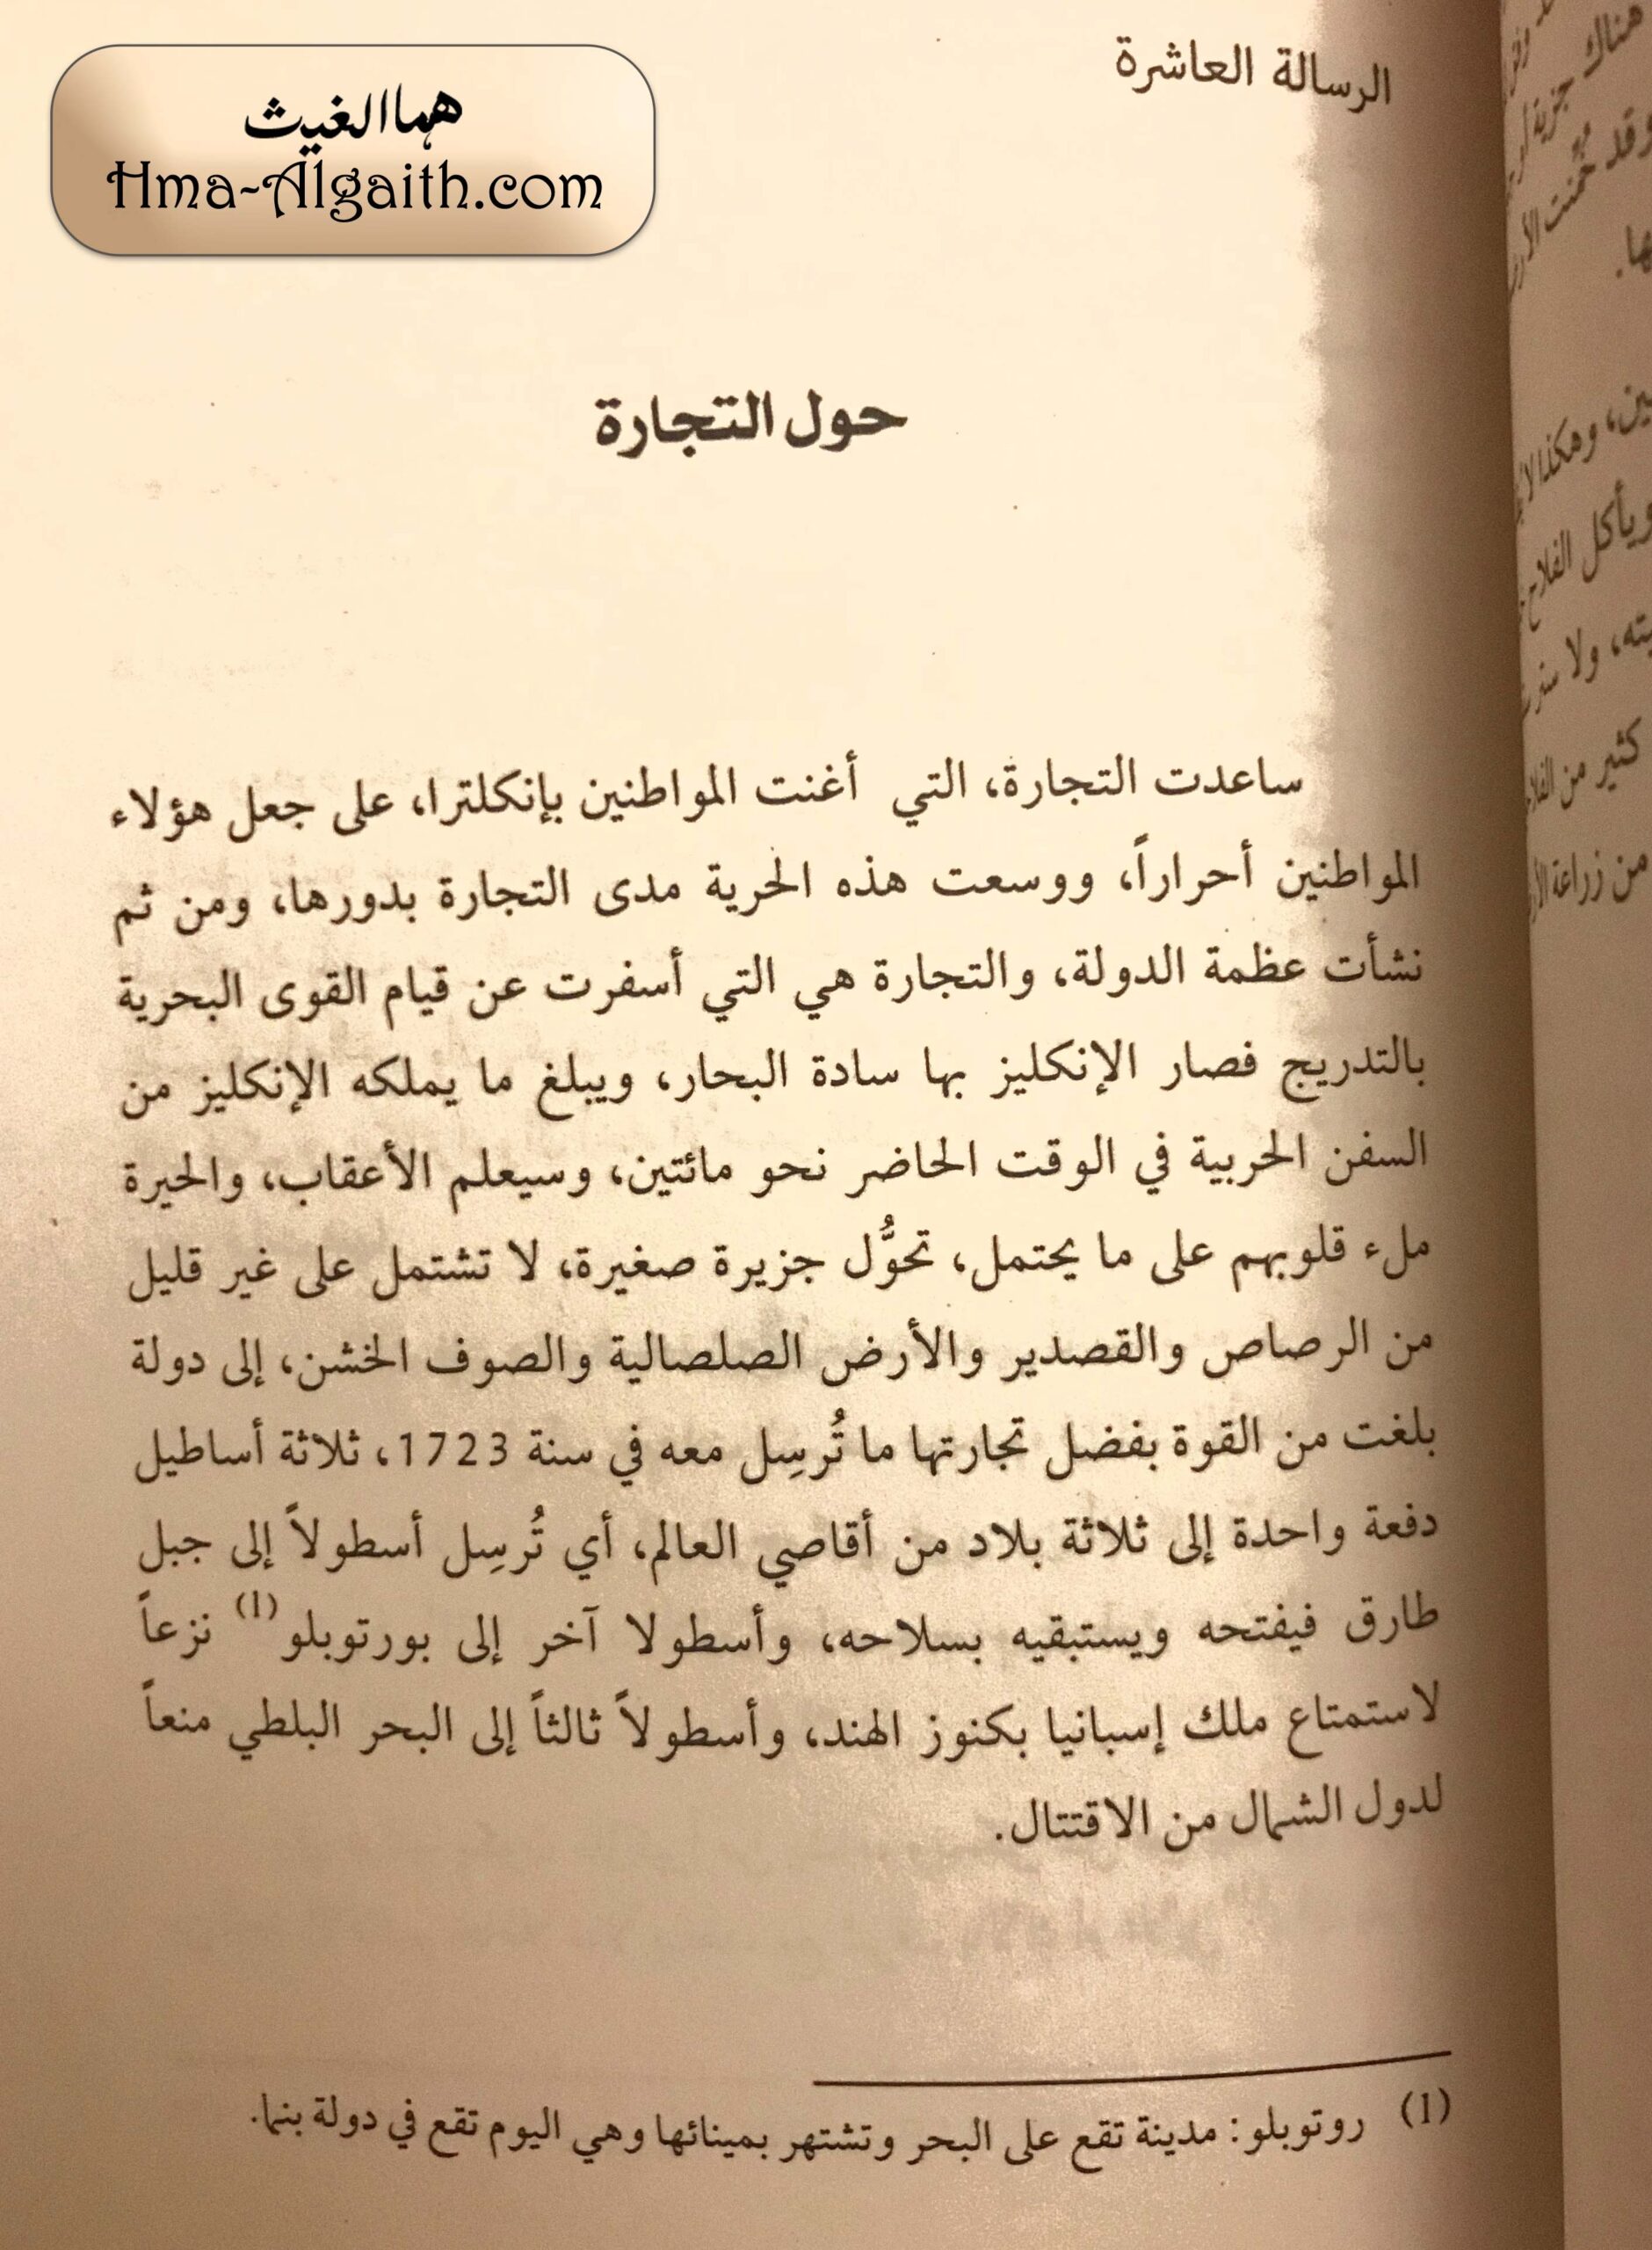 هما الغيث
Hma-Algaith.com
الرسالة العاشرة
حول التجارة
ساعدت التجارة، التي أغنت المواطنين بإنكلترا، على جعل هؤلاء
المواطنين أحراراً، ووسعت هذه الحرية مدى التجارة بدورها، ومن ثم
نشأت عظمة الدولة، والتجارة هي التي أسفرت عن قيام القوى البحرية
بالتدريج فصار الإنكليز بها سادة البحار، ويبلغ ما يملكه الإنكليز من
السفن الحربية في الوقت الحاضر نحو مائتين، وسيعلم الأعقاب، والحيرة
ملء قلوبهم على ما يحتمل، تحوُّل جزيرة صغيرة، لا تشتمل على غير قليل
من الرصاص والقصدير والأرض الصلصالية والصوف الخشن، إلى دولة
بلغت من القوة بفضل تجارتها ما تُرسِل معه في سنة 1723، ثلاثة أساطيل
دفعة واحدة إلى ثلاثة بلاد من أقاصي العالم، أي تُرسِل أسطولاً إلى جبل
طارق فيفتحه ويستبقيه بسلاحه، وأسطولا آخر إلى بورتوبلو(1) نزعاً
لاستمتاع ملك إسبانيا بكنوز الهند، وأسطولاً ثالثاً إلى البحر البلطي منعاً
لدول الشمال من الاقتتال.
(1) روتوبلو: مدينة تقع على البحر وتشتهر بمينائها وهي اليوم تقع في دولة بنما.
هناك جزية
وقد خمنت
ها.
ين، وهكذا لا
ويأكل الفلاح
يته، ولا
كثير من
من زراعة